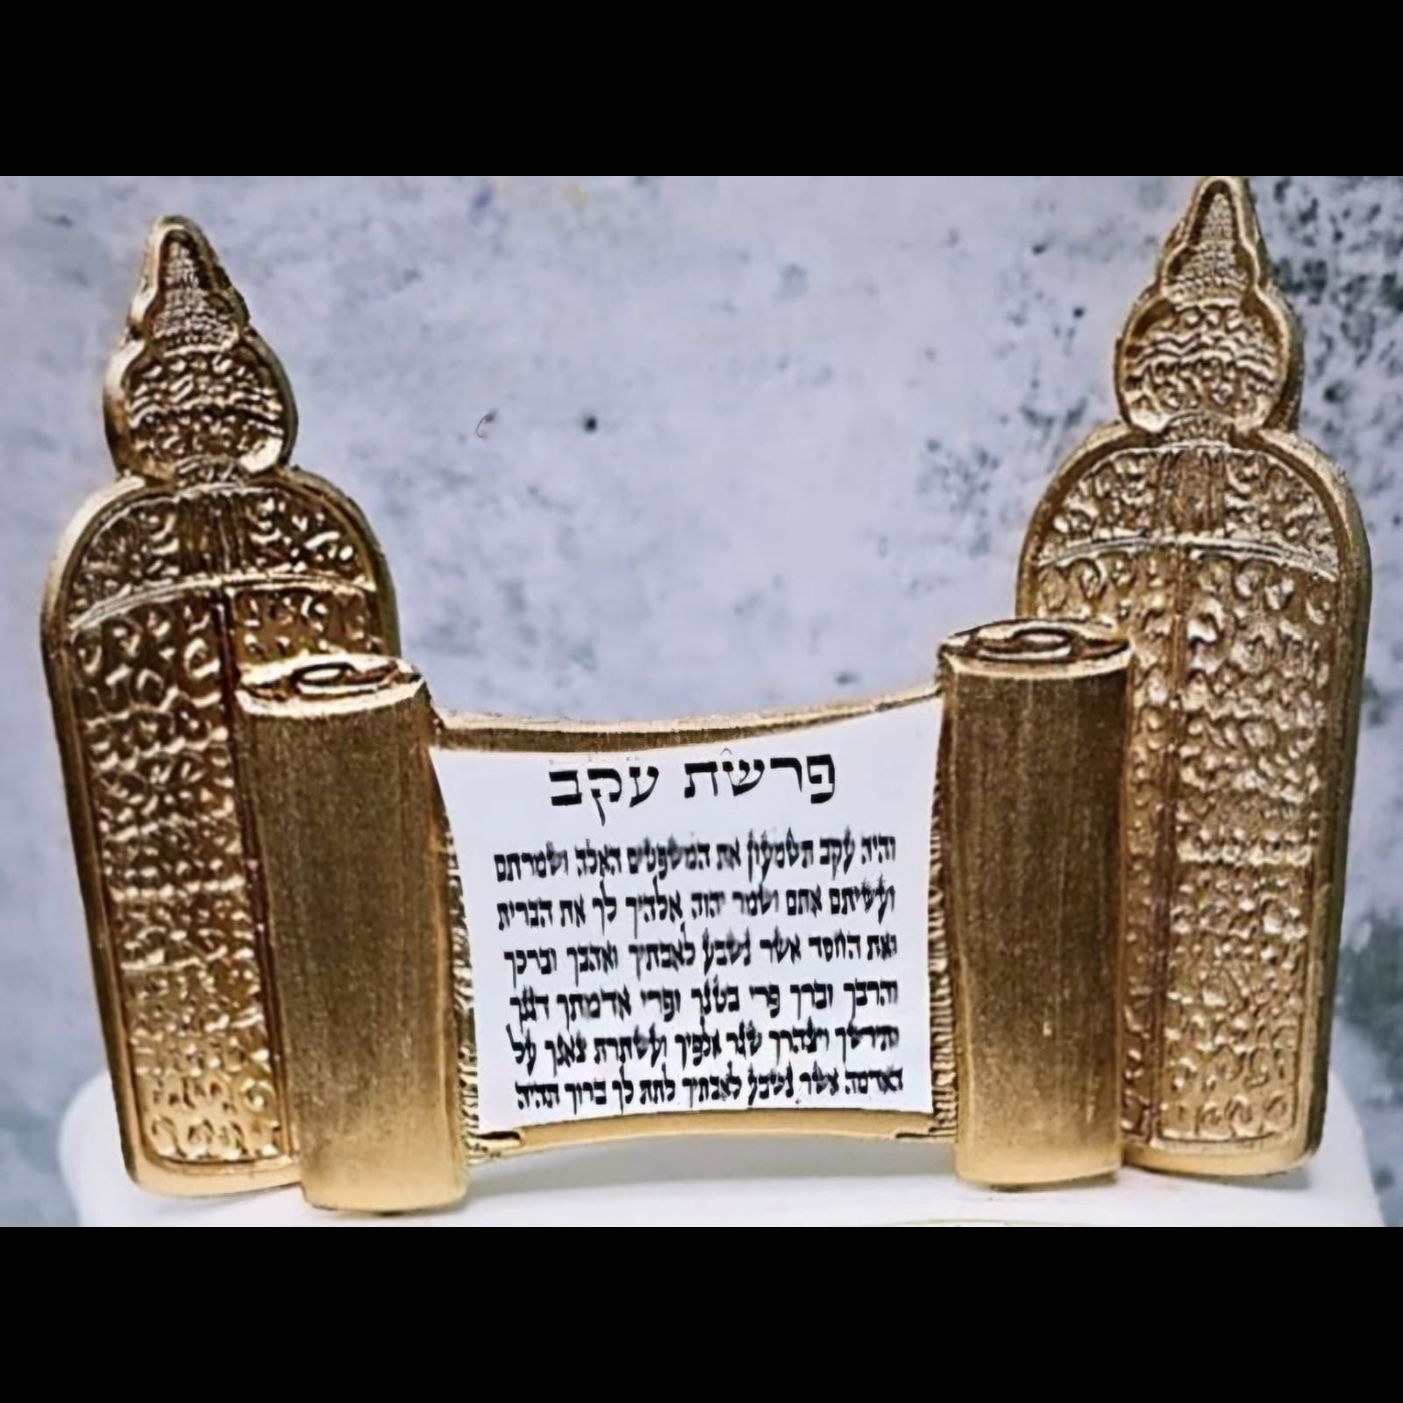 פרשת עקב
והיה עקב תשמעון את המשפטים האלה ושמרתם
ועשיתם אתם ושמר יהוה אלהיך לך את הברית
ואת החסד אשר נשבע לאבתיך ואהבך וברכך
והרבך וברך פרי בטנך ופרי אדמתך דגנך
ותירשך ויצהרך שגר אלפיך ועשתרת צאנך על
האדמה אשר נשבע לאבתיך לתת לך ברוך תהיה